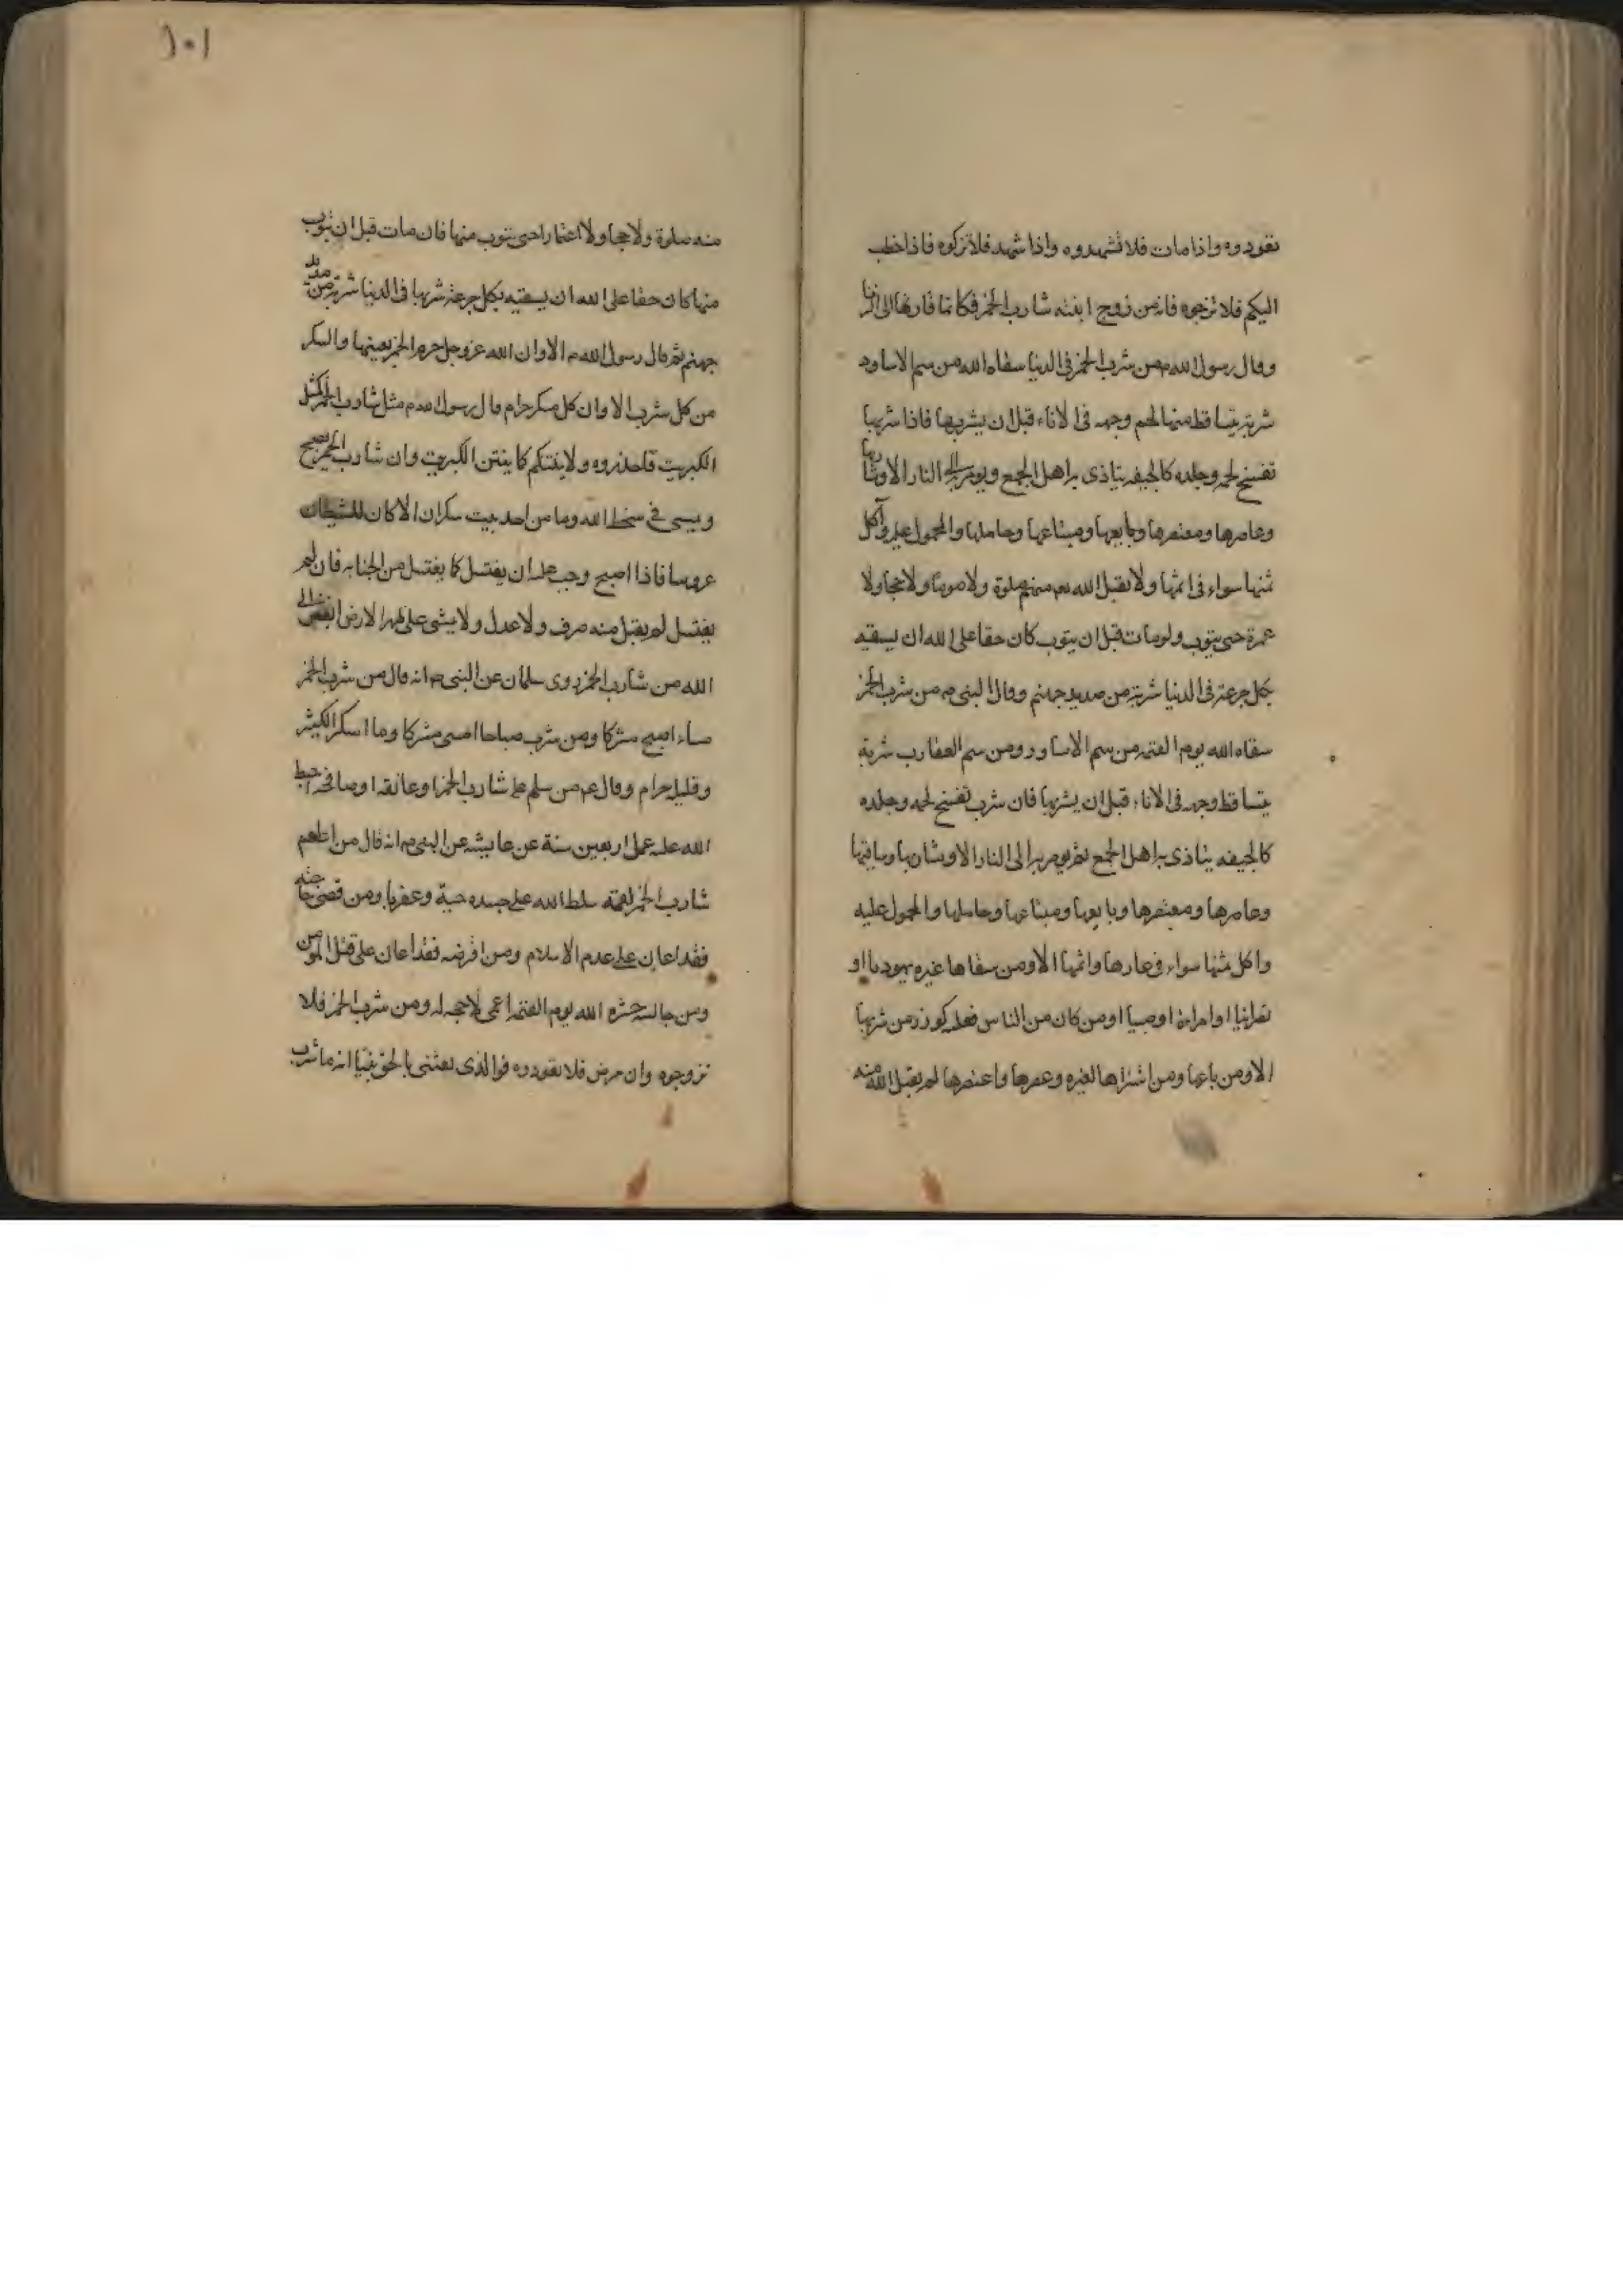 تعودوه واذا مات فلا تشهدوه واذا شهد فلا تزكوه فاذا خطب
اليكم فلا تزوجوه فانه من زوج ابنته شارب الخمر فكانما قادها الى الزنا
وقال رسول الله ص من شرب الخمر فى الدنيا سقاه الله من سم الاساود
شربة يتساقط منها لحم وجهه فى الاناء قبل ان يشربها فاذا شربها
تفسخ لحمه وجلده كالجيفه يتاذى به اهل الجمع ويومر به الى النار الا وشاربها
وعاصرها ومعتصرها وبايعها ومبتاعها وحاملها والمحمول عليه وآكل
ثمنها سواء فى اثمها ولا يقبل الله تعم منهم صلوة ولا صوما ولا حجا ولا
عمرة حتى يتوب ولو مات قبل ان يتوب كان حقا على الله ان يسقيه
بكل جرعة فى الدنيا شربة من صديد جهنم وقال النبى ص من شرب الخمر
سقاه الله يوم القيمه من سم الاساود ومن سم العقارب شربة
يتساقط وجهه فى الاناء قبل ان يشربها فان شرب تفسخ لحمه وجلده
كالجيفه يتاذى به اهل الجمع ثم يومر به الى النار الا وشاربها وساقيها
وعاصرها ومعتصرها وبايعها ومبتاعها وحاملها والمحمول عليه
واكل ثمنها سواء فى عارها واثمها الا ومن سقاها غيره يهوديا او
نصرانيا او امراءة او صبيا او من كان من الناس فعليه كوزر من شربها
الا ومن باعها ومن اشتراها لغيره وعصرها واعتصرها لم يقبل الله منه
١٠١
منه صلوة ولا حجا ولا اعتمارا حتى يتوب منها فان مات قبل ان يتوب
منها كان حقا على الله ان يسقيه بكل جرعة شربها فى الدنيا شربة من صديد
جهنم ثم قال رسول الله ص الا وان الله عز وجل حرم الخمر بعينها والسكر
من كل شراب الا وان كل مسكر حرام قال رسول الله ص مثل شارب الخمر كمثل
الكبريت فاحذروه ولا ينتنكم كما ينتن الكبريت وان شارب الخمر يصبح
ويمسى فى سخط الله وما من احد يبيت سكران الا كان للشيطان
عروسا فاذا اصبح وجب عليه ان يغتسل كما يغتسل من الجنابه فان لم
يغتسل لم يقبل منه صرف ولا عدل ولا يمشى على ظهر الارض ابغض الى
الله من شارب الخمر روى سلمان عن النبى ص انه قال من شرب الخمر
مساء اصبح مشركا ومن شرب صباحا امسى مشركا وما اسكر الكثير
وقليله حرام وقال عم من سلم على شارب الخمر او عانقه او صافحه احبط
الله عليه عمل اربعين سنة عن عايشه عن النبى ص انه قال من اطعم
شارب الخمر لقمة سلط الله على جسده حية وعقربا ومن قضى حاجته
فقد اعان على هدم الاسلام ومن اقرضه فقد اعان على قتل المومن
ومن جالسه حشره الله يوم القيمه اعمى لا حجه له ومن شرب الخمر فلا
تزوجوه وان مرض فلا تعودوه فوالذى بعثنى بالحق نبيا انه ما شرب